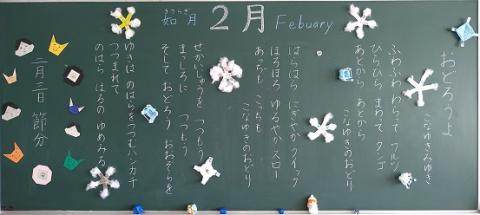 きさらぎ
如月 2月 Febuary
おどろうよ
こなゆきみゆき
ふわふわ やわらて ワルツ
ひらひら まわて タンゴ
あとから あとから
こなゆきのおどり
はらはら にぎやか クイック
ほろほろ ゆるやか スロー
あっちも こっちも
こなゆきのおどり
せかいじゅうを つつもう
まっしろに つつもう
そして おどろう おおぞらを
ゆきは のはらを つつむ ハンカチ
つつまれて
のはら はるの ゆめみる
二月三日 節分